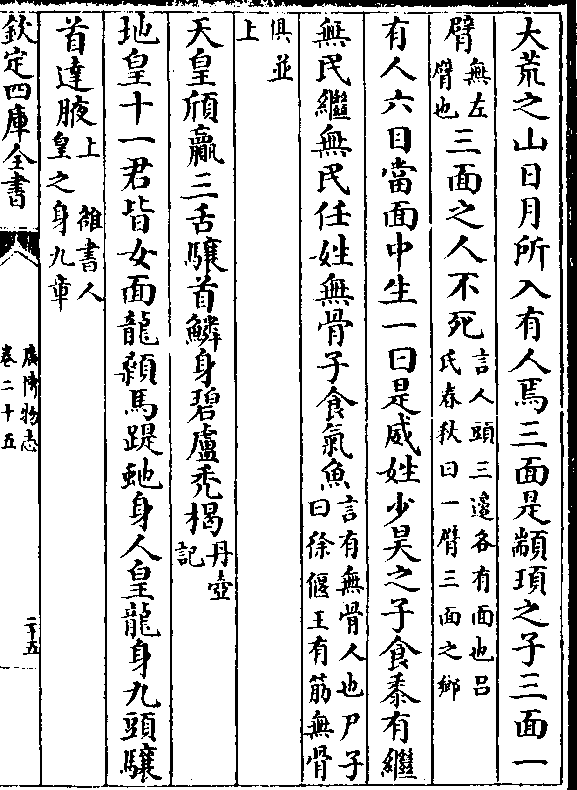 大荒之山日月所入有人焉三面是顓頊之子三面一
臂無左臂也三面之人不死言人頭三邊各有面也呂氏春秋曰一臂三面之鄉
有人六目當面中生一曰是威姓少昊之子食黍有繼
無民繼無民任姓無骨子食氣魚言有無骨人也尸子曰徐偃王有筋無骨
俱並上
天皇頎羸三舌驤首鱗身碧盧禿楬丹壺記
地皇十一君皆女面龍顙馬踶虵身人皇龍身九頭驤
首達腋上雒書人皇之身九章
欽定四庫全書
廣博物志
卷二十五
二十五